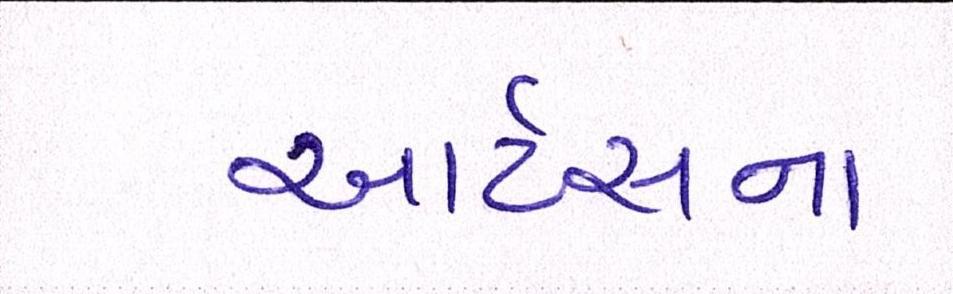 આર્ટસના